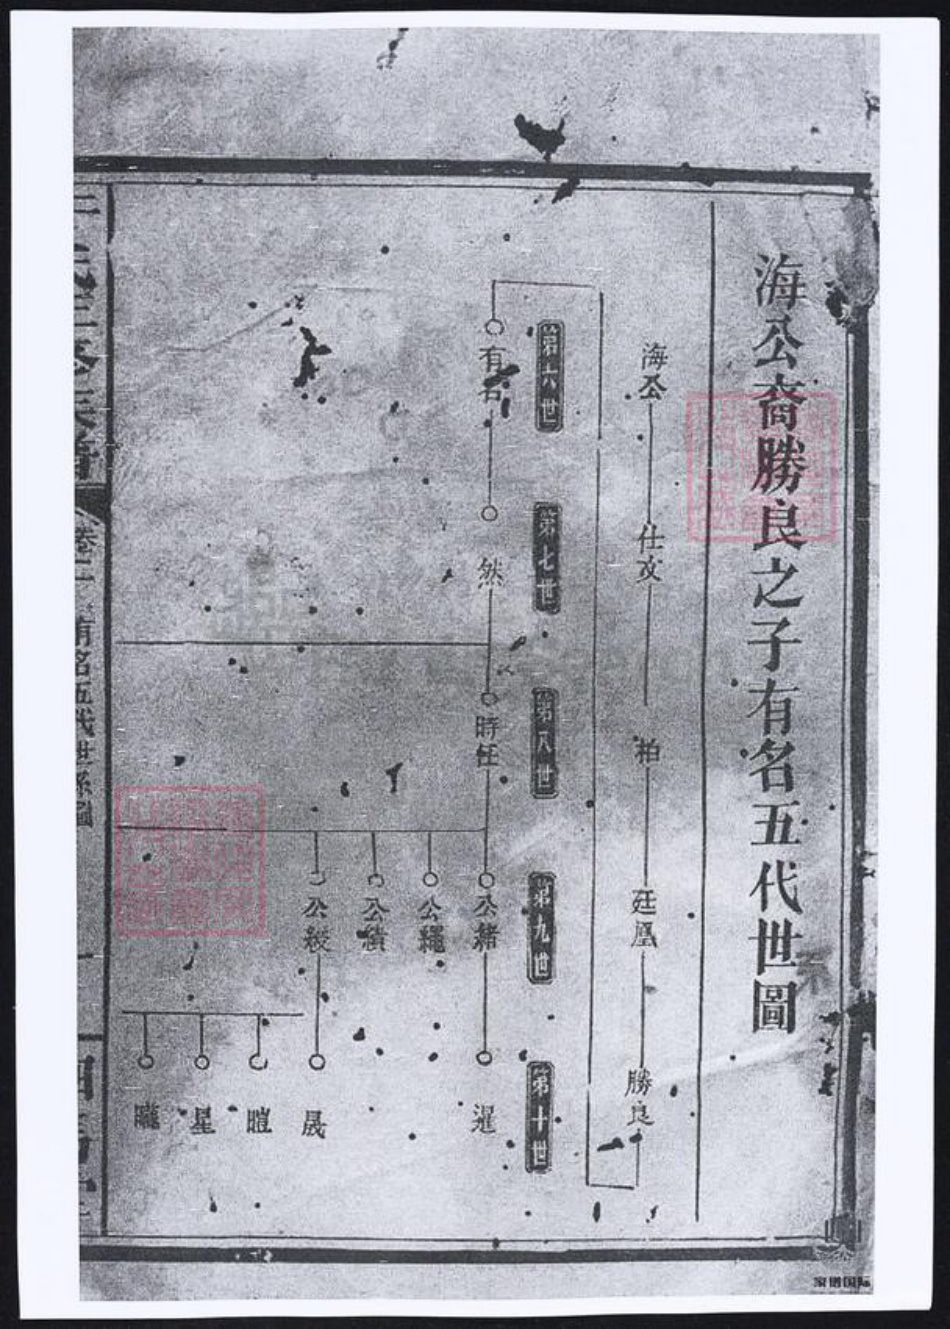 海公裔勝良之子有名五代世圖
海公
仕文
柏
廷凰
勝良
第六世
第七世
第八世
第九世
第十世
有名
然
時任
公緒
暹
公繩
公績
公綬
晟
暟
星
曨
卷二
有名五代世系圖
家譜国际